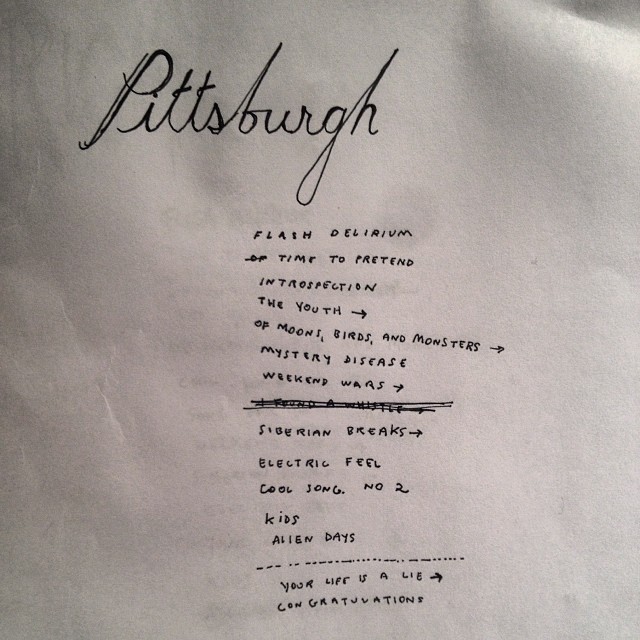 Pittsburgh
FLASH DELIRIUM
OF TIME TO PRETEND
INTROSPECTION
THE YOUTH →
OF MOONS, BIRDS, AND MONSTERS →
MYSTERY DISEASE
WEEKEND WARS →
I FOUND A WHISTLE →
SIBERIAN BREAKS →
ELECTRIC FEEL
COOL SONG. NO 2
KIDS
ALIEN DAYS
YOUR LIFE IS A LIE →
CONGRATULATIONS